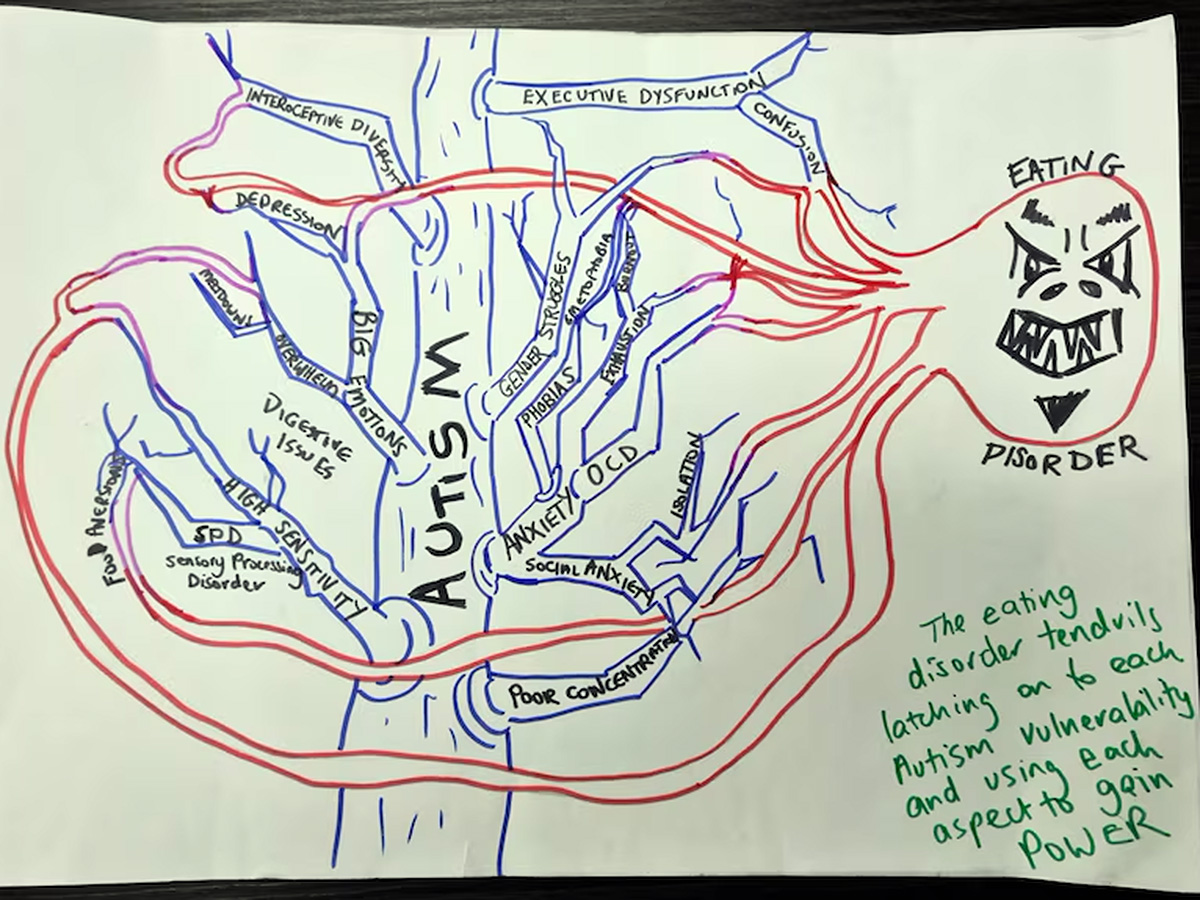 INTEROCEPTIVE DIVERSITY
EXECUTIVE DYSFUNCTION
CONFUSION
DEPRESSION
MELTDOWNS
OVERWHELM
BIG EMOTIONS
DIGESTIVE
ISSUES
AUTISM
GENDER STRUGGLES
EMETOPHOBIA
BURNOUT
PHOBIAS
EXHAUSTION
OCD
ANXIETY
ISOLATION
SOCIAL ANXIETY
FOOD AVERSIONS
SPD
Sensory Processing
Disorder
HIGH SENSITIVITY
POOR CONCENTRATION
EATING
DISORDER
The eating
disorder tendrils
latching on to each
Autism vulnerability
and using each
aspect to gain
POWER